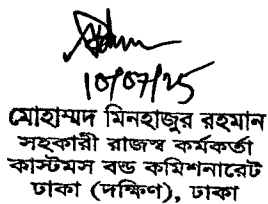 10/07/25
মোহাম্মদ মিনহাজুর রহমান
সহকারী রাজস্ব কর্মকর্তা
কাস্টমস বন্ড কমিশনারেট
ঢাকা (দক্ষিণ), ঢাকা